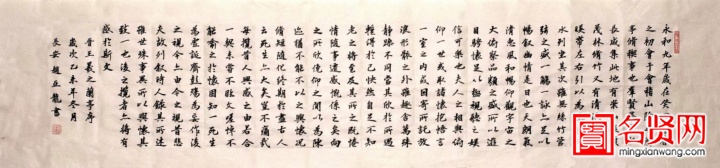 永和九年歲在癸
之初會于會稽山陰
亭脩禊事也群賢畢
長咸集此地有崇
茂林脩竹又有清
暎帶左右引以為
水列坐其次雖無絲竹管
弦之盛一觴一詠亦足以
暢敘幽情是日也天朗氣
清惠風和暢仰觀宇宙之
大俯察品類之盛所以遊
目騁懷足以極視聽之娛
信可樂也夫人之相與俯
仰一世或取諸懷抱悟言
一室之內或因寄所託放
浪形骸之外雖趣舍萬殊
靜躁不同當其欣於所遇
暫得於己快然自足不知
老之將至及其所之既倦
情隨事遷感慨係之矣向
之所欣俛仰之間以為陳
迹猶不能不以之興懷況
脩短隨化終期於盡古人
云死生亦大矣豈不痛哉
每攬昔人興感之由若合
一契未嘗不臨文嗟悼不
能喻之於懷固知一死生
為虛誕齊彭殤為妄作後
之視今亦由今之視昔悲
夫故列敘時人錄其所述
雖世殊事異所以興懷其
致一也後之攬者亦將有
感於斯文
晉王羲之蘭亭序
歲次乙未年冬月
長安趙五龍書
名贤网
mingxianwang.com